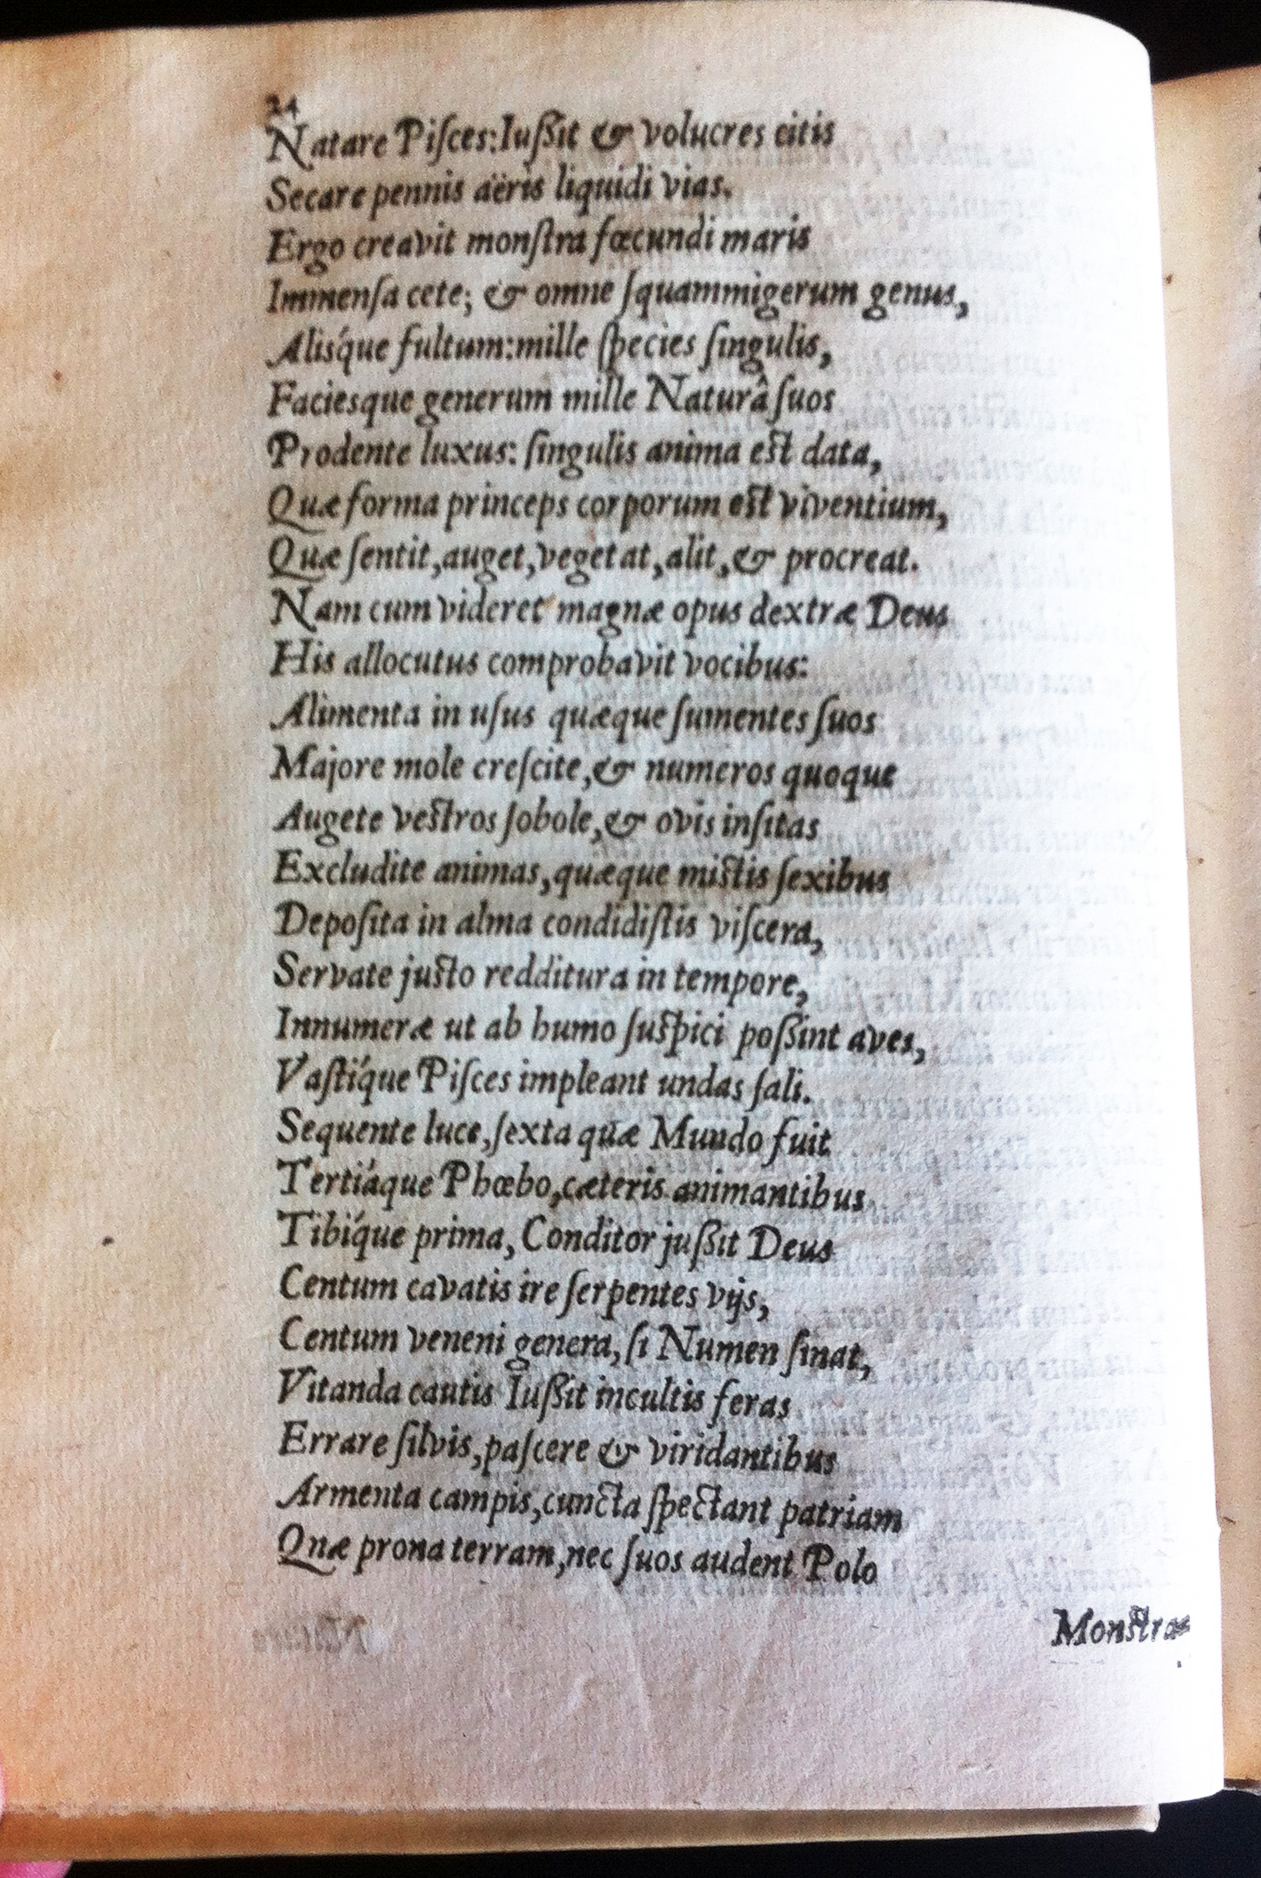 24
Natare Piſces: Iußit & volucres citis
Secare pennis aëris liquidi vias.
Ergo creavit monſtra fœcundi maris
Immenſa cete; & omne ſquammigerum genus,
Alisq́ue fultum: mille ſpecies ſingulis,
Faciesque generum mille Naturâ ſuos
Prodente luxus: ſingulis anima eſt data,
Quæ forma princeps corporum eſt viventium,
Quæ ſentit, auget, vegetat, alit, & procreat.
Nam cum videret magnæ opus dextræ Deus
His allocutus comprobavit vocibus:
Alimenta in uſus quæque ſumentes ſuos
Majore mole creſcite, & numeros quoque
Augete veſtros ſobole, & ovis inſitas
Excludite animas, quæque miſtis ſexibus
Depoſita in alma condidiſtis viſcera,
Servate juſto redditura in tempore,
Innumeræ ut ab humo ſuſpici poßint aves,
Vaſtiq́ue Piſces impleant undas ſali.
Sequente luce, ſexta quæ Mundo fuit
Tertiáque Phœbo, cæteris animantibus
Tibiq́ue prima, Conditor jußit Deus
Centum cavatis ire ſerpentes vijs,
Centum veneni genera, ſi Numen ſinat,
Vitanda cautis Iußit incultis feras
Errare ſilvis, paſcere & viridantibus
Armenta campis, cuncta ſpectant patriam
Quæ prona terram, nec ſuos audent Polo
Monſtra-